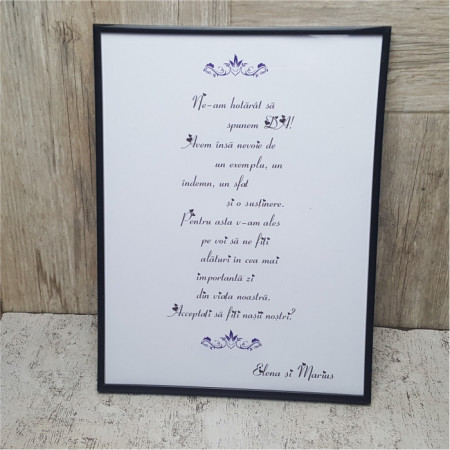 Ne-am hotărât să
spunem DA!
Avem însă nevoie de
un exemplu, un
îndemn, un sfat
și o susținere.
Pentru asta v-am ales
pe voi să ne fiți
alături în cea mai
importantă zi
din viața noastră.
Acceptați să fiți nașii noștri?
Elena si Marius